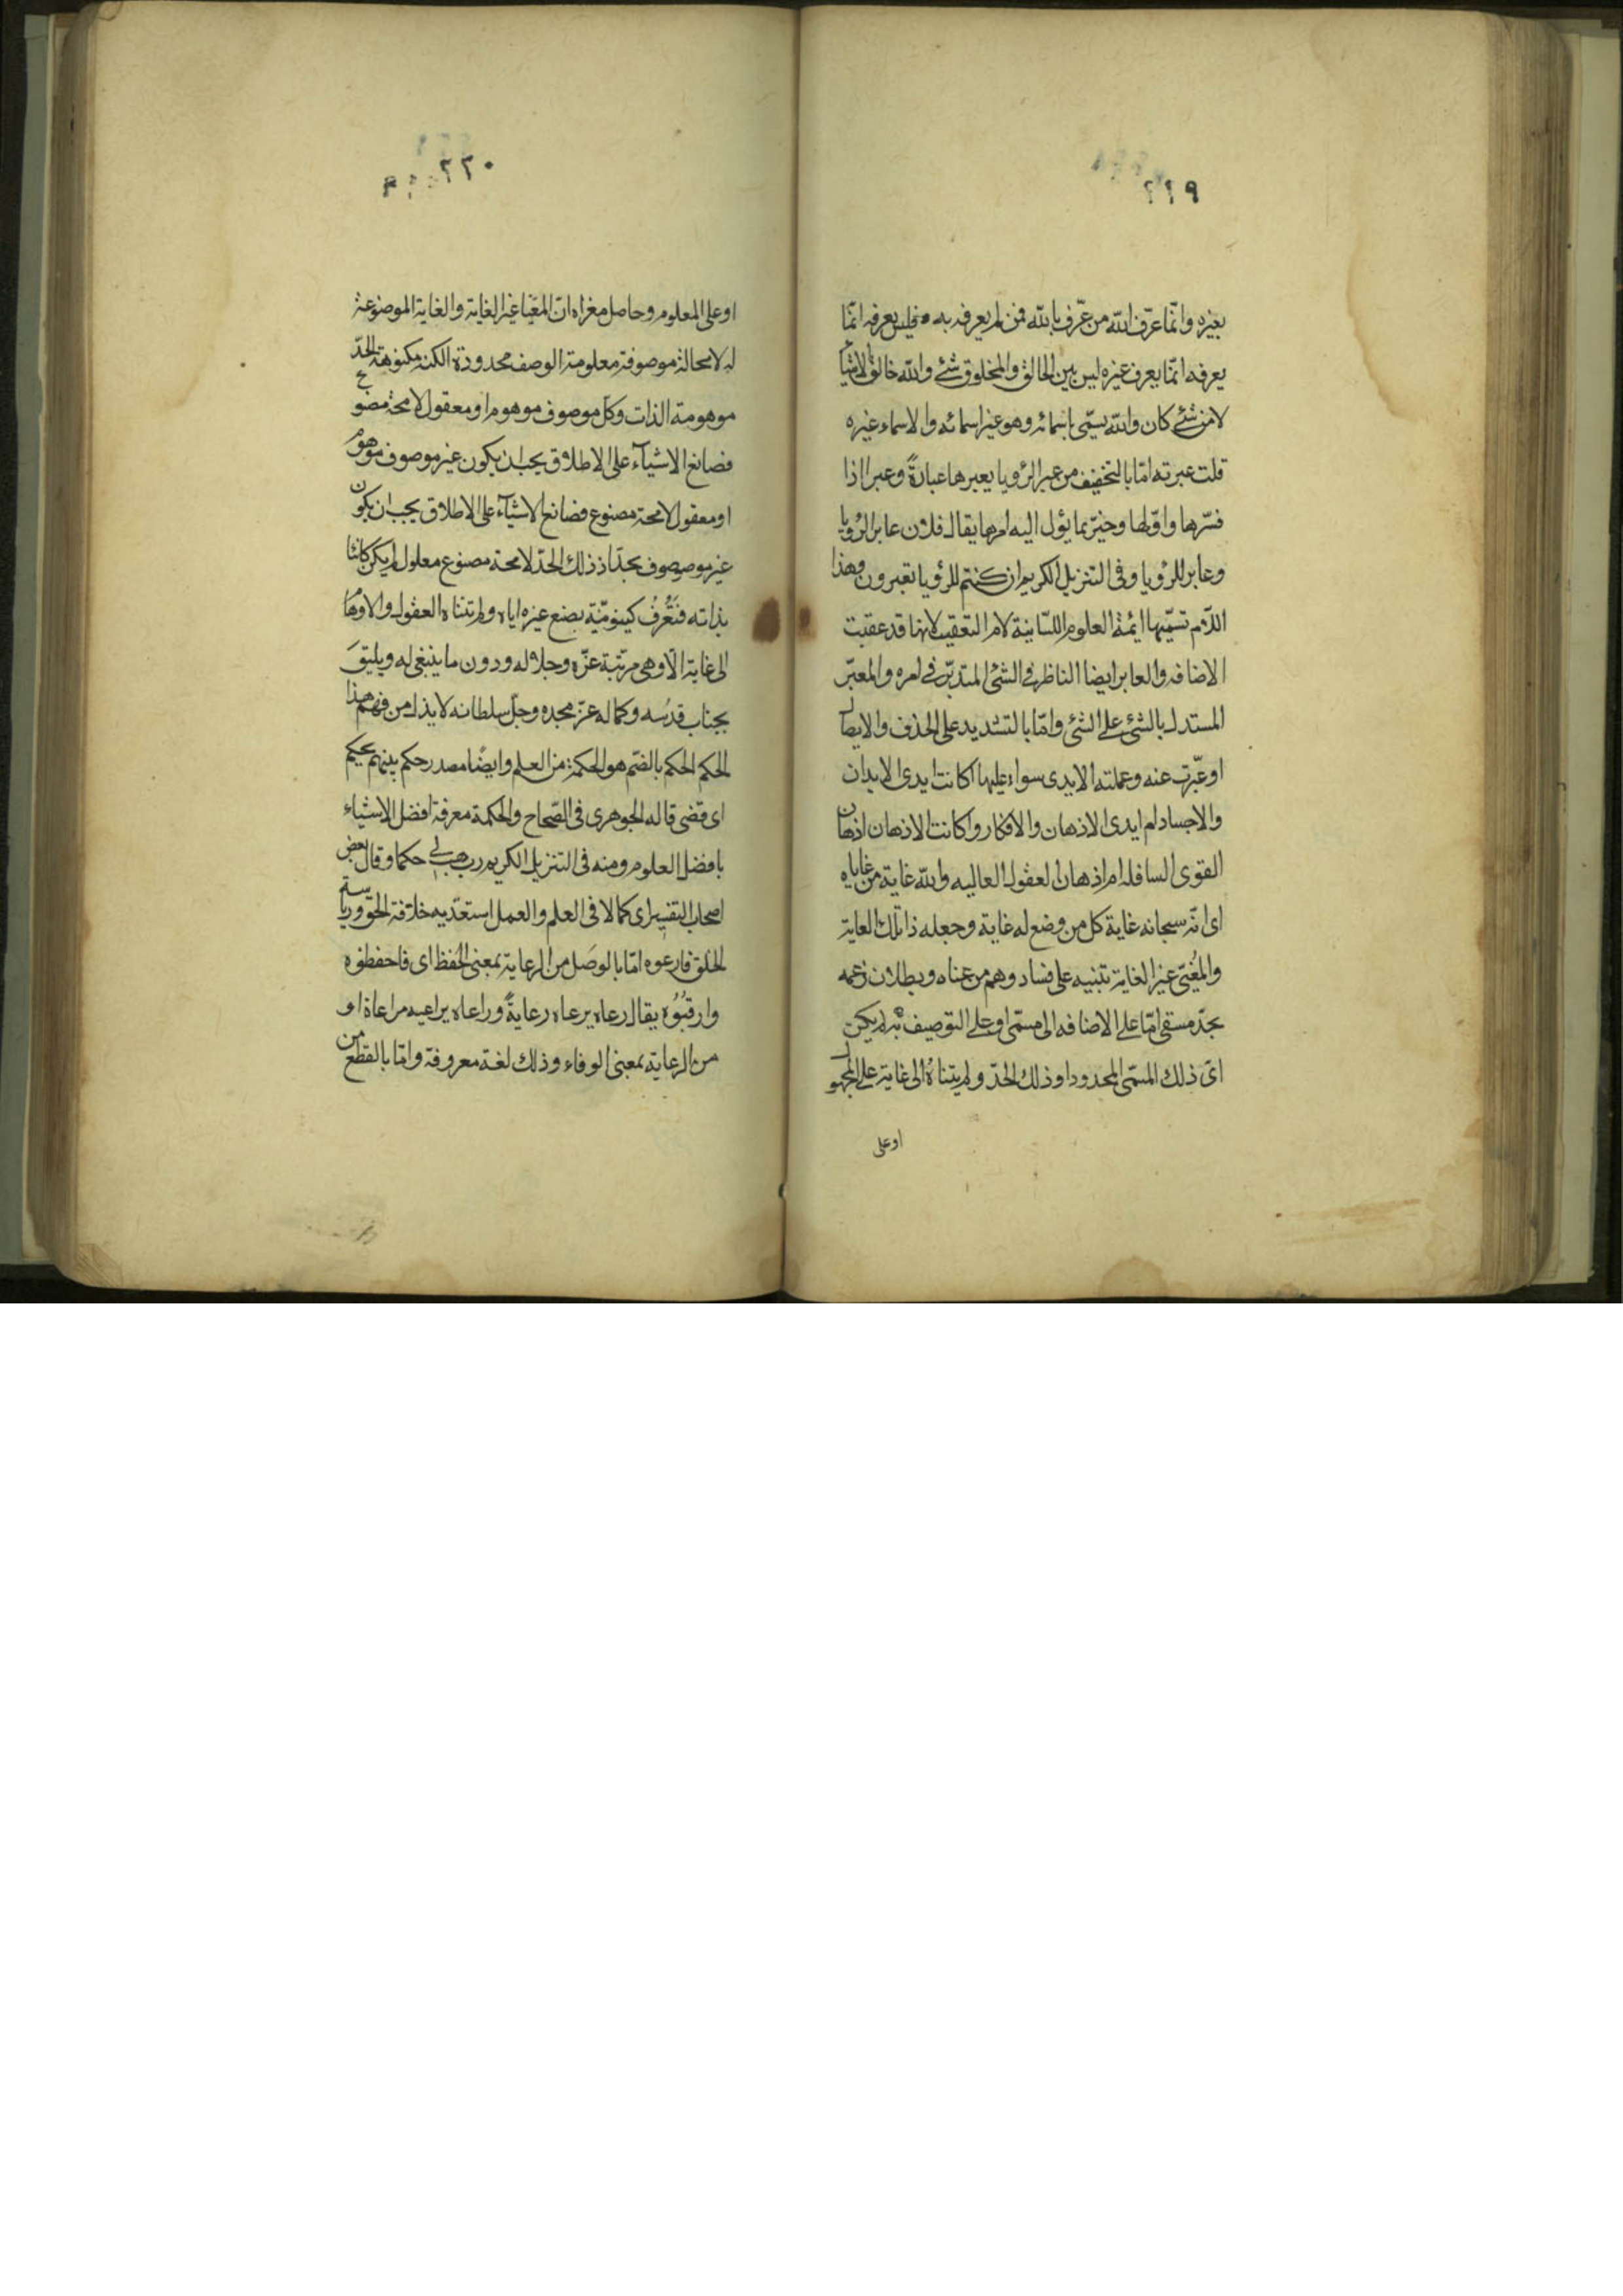 ٢١٩
بغيره وانّما عرّف الله من عرّف بالله فمن لم يعرفه به فليس يعرفه انّما
يعرفه انّما يعرف غيره ليس بين الخالق والمخلوق شئ والله خالق الاشياء
لا من شئ كان والله يسمّى باسمائه وهو غير اسمائه والاسماء غيره
قلت عبرته امّا بالتخفيف من عبر الرؤيا يعبرها عبارةً وعبر اذا
فسّرها واوّلها وخبّر بما يؤل اليه امرها يقال فلان عابر الرؤيا
وعابر للرؤيا وفى التنزيل الكريم ان كنتم للرؤيا تعبرون وهذا
اللام تسمّيها ائمة العلوم اللسانية لام التعقيب لانها قد عقبت
الاضافه والعابر ايضا الناظر فى الشئ المتدبّر فى امره والمعبّر
المستدل بالشئ على الشئ وامّا بالتشديد على الحذف والايصال
او عبّرت عنه وعملته الايدى سواء عليها اكانت ايدى الابدان
والاجساد ام ايدى الاذهان والافكار واكانت الاذهان اذهان
القوى السافله ام اذهان العقول العاليه والله غاية من غاياه
اى انّه سبحانه غاية كل من وضع له غاية وجعله ذا تلك الغاية
والمغيّى غير الغاية تنبيه على فساد وهم من عناه وبطلان زعمه
بحدّ مسمّى امّا على الاضافه الى مسمّى او على التوصيف به لم يكن
اى ذلك المسمّى المحدود او ذلك الحدّ ولم يتناه الى غاية على المجهول
او على
٢٢٠
او على المعلوم وحاصل مغزاه انّ المغيّا غير الغاية والغاية الموضوعة
له لا محالة موصوفة معلومة الوصف محدودة الكنه مكنوهة الحدّ
موهومة الذات وكل موصوف موهوم او معقول لا محة مصنوع
فصانع الاشيآء على الاطلاق يجب ان يكون غير موصوف موهوم
او معقول لا محة مصنوع فصانع الاشيآء على الاطلاق يجب ان يكون
غير موصوف بحدّ اذ ذلك الحدّ لا محة مصنوع معلول لم يكن كائنا
بذاته فتُعرف كينونيّة بصنع غيره اياه ولم تتناه العقول والاوهام
الى غاية الّا وهى مرتبة عزّه وجلاله ودون ما ينبغى له ويليق
بجناب قدسه وكماله عزّ مجده وجلّ سلطانه لا يذل من فهم هذا
الحكم الحكم بالضم هو الحكمة من العلم وايضًا مصدر حكم بينهم يحكم
اى قضى قاله الجوهرى فى الصّحاح والحكمة معرفة افضل الاشياء
بافضل العلوم ومنه فى التنزيل الكريم رب هب لى حكما وقال بعض
اصحاب التفسير اى كمالا فى العلم والعمل استعدّ به خلافة الحق ورياسة
الخلق فارعوه امّا بالوصل من الرعاية بمعنى الحفظ اى فاحفظوه
وارقبُوه يقال رعاه يرعاه رعايةً وراعاه يراعيه مراعاة او
من الرعاية بمعنى الوفاء وذلك لغة معروفة وامّا بالقطع من